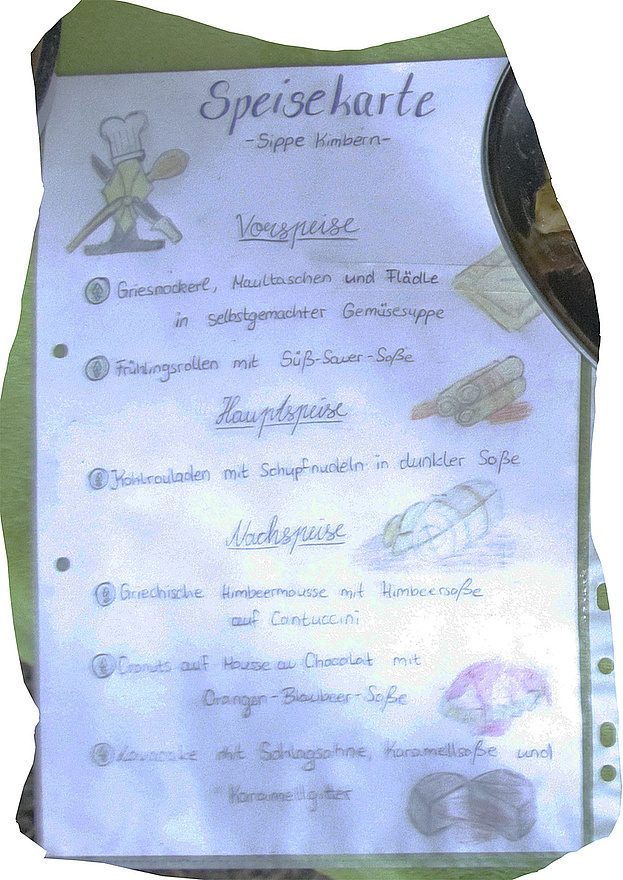 Speisekarte
-Sippe Kimbern-
Vorspeise
Griesnockerl, Maultaschen und Flädle
in selbstgemachter Gemüsesuppe
Frühlingsrollen mit Süß-Sauer-Soße
Hauptspeise
Kohlrouladen mit Schupfnudeln in dunkler Soße
Nachspeise
Griechische Himbeermousse mit Himbeersoße
auf Cantuccini
Donuts auf Mousse au Chocolat mit
Orangen-Blaubeer-Soße
Lavacake mit Schlagsahne, Karamellsoße und
Karamellgitter